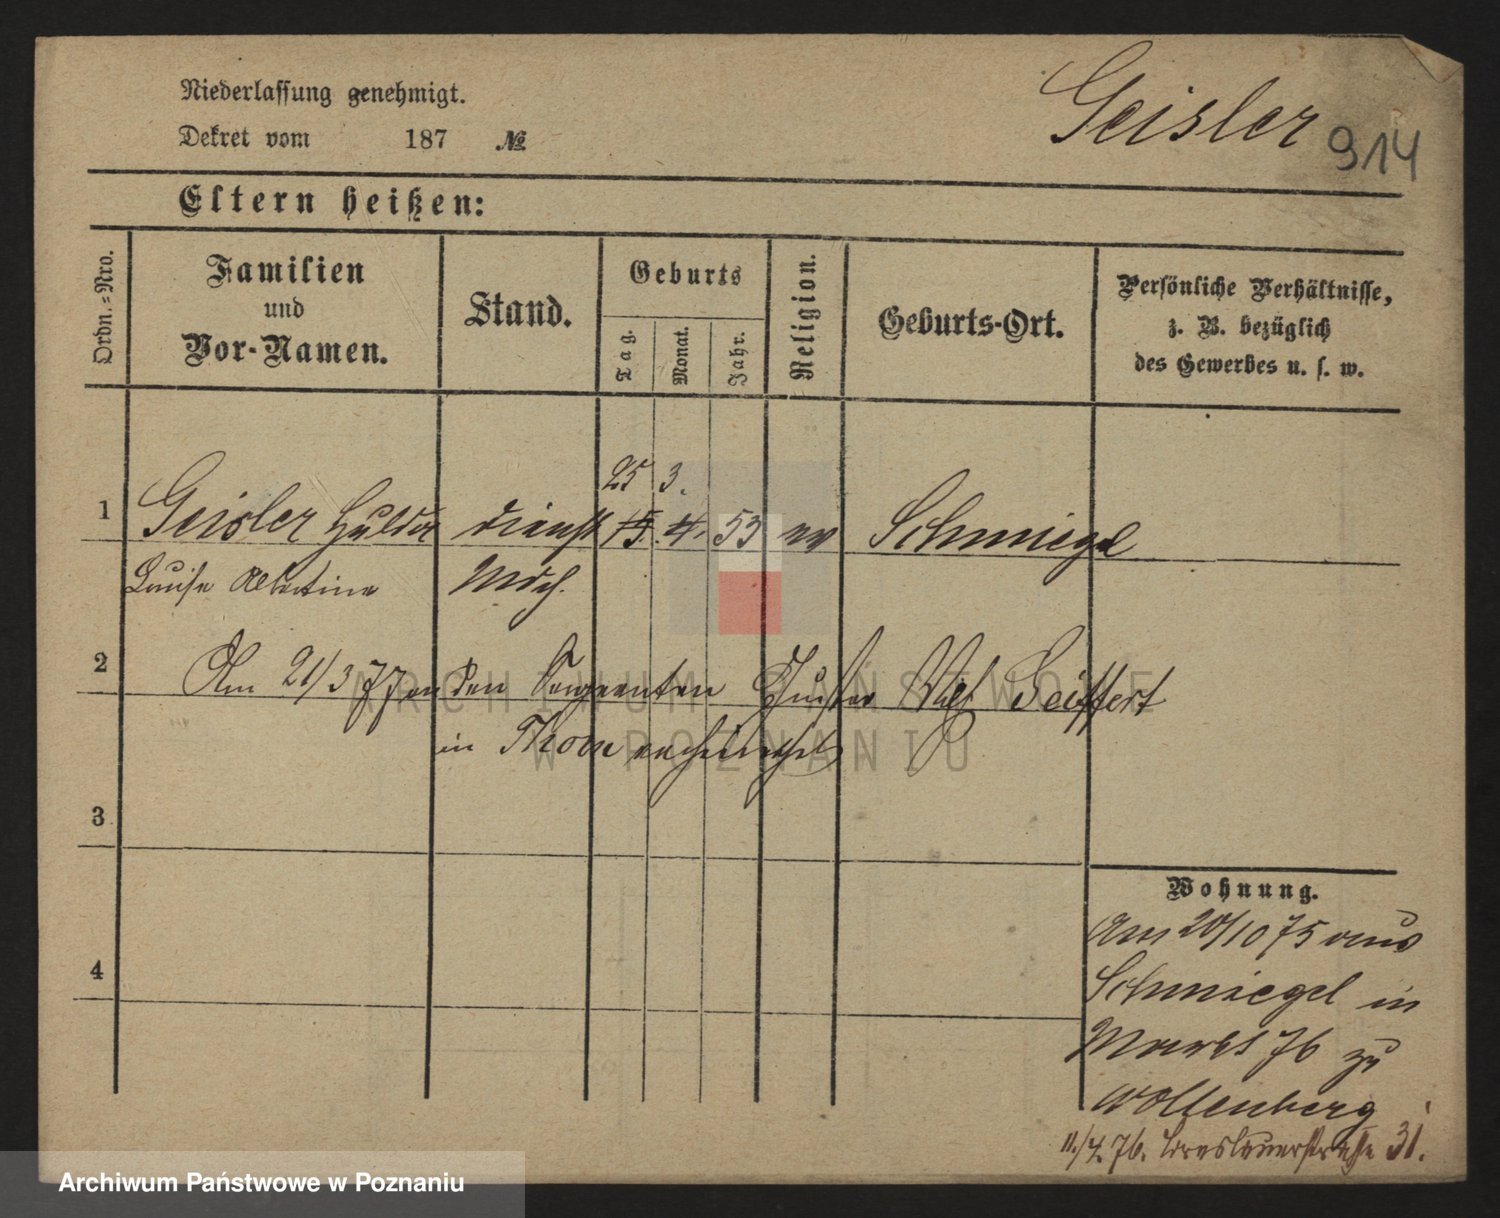 Niederlassung genehmigt.
Dekret vom 187 №
Geisler 914
Eltern heißen:
Ordn.=Nro.
Familien
und
Vor-Namen.
Stand.
Geburts
Tag.
Monat.
Jahr.
Religion.
Geburts-Ort.
Persönliche Verhältnisse,
z. B. bezüglich
des Gewerbes u. s. w.
25 3.
1 Geisler Hulda dienst 15. 4. 53 ev Schmiegel
Louise Albertine Mdch.
2 Am 21/3 77 an den Sergeanten Gustav Seiffert
in Thorn verheirathet
3
4
Wohnung.
Am 20/10 75 aus
Schmiegel in
Markt 76 zu
Wollenberg
11./4. 76. Breslauerstraße 31.
ARCHIWUM PAŃSTWOWE
W POZNANIU
Archiwum Państwowe w Poznaniu